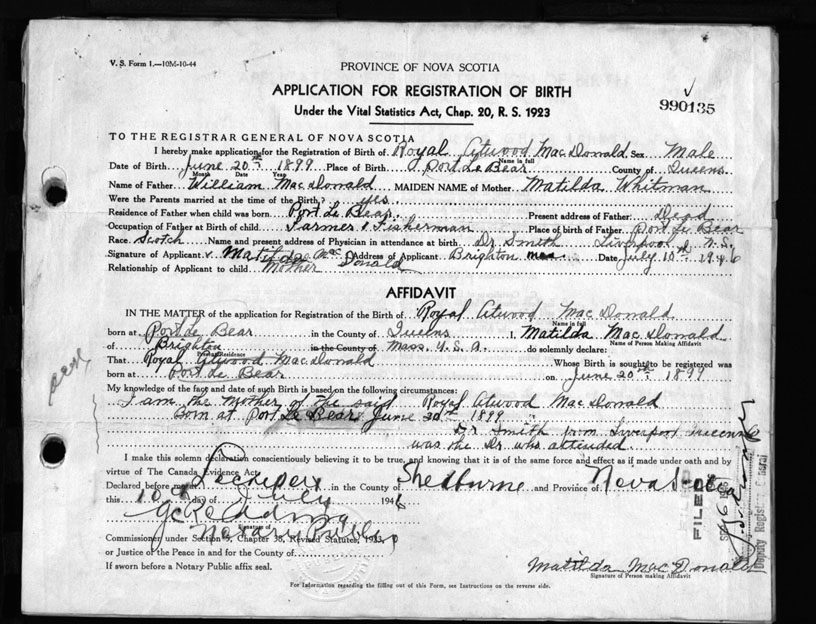 V. S. Form 1.—10M-10-44
PROVINCE OF NOVA SCOTIA
APPLICATION FOR REGISTRATION OF BIRTH
Under the Vital Statistics Act, Chap. 20, R. S. 1923
990135
TO THE REGISTRAR GENERAL OF NOVA SCOTIA
I hereby make application for the Registration of Birth of Royal Atwood MacDonald Sex Male
Name in full
Date of Birth June 20th 1899 Place of Birth Port Le Bear County of Queens
Month Date Year
Name of Father William MacDonald MAIDEN NAME of Mother Matilda Whitman
Were the Parents married at the time of the Birth? yes
Residence of Father when child was born Port Le Bear Present address of Father Dead
Occupation of Father at Birth of child Farmer & Fisherman Place of birth of Father Port Le Bear
Race Scotch Name and present address of Physician in attendance at birth Dr Smith Liverpool N.S.
Signature of Applicant Matilda MacDonald Address of Applicant Brighton Mass. Date July 10th 1946
Relationship of Applicant to child Mother
AFFIDAVIT
IN THE MATTER of the application for Registration of the Birth of Royal Atwood MacDonald
Name in full
born at Port de Bear in the County of Queens I, Matilda MacDonald
Name of Person Making Affidavit
of Brighton in the County of Mass. U.S.A. do solemnly declare:
Present Residence
That Royal Atwood MacDonald Whose Birth is sought to be registered was
born at Port de Bear on June 20th 1899
My knowledge of the fact and date of such Birth is based on the following circumstances:
I am the Mother of the said Royal Atwood MacDonald
Born at Port Le Bear June 20th 1899
Dr Smith from Liverpool Queens
was the Dr who attended
I make this solemn declaration conscientiously believing it to be true, and knowing that it is of the same force and effect as if made under oath and by
virtue of The Canada Evidence Act.
Declared before me at Lockeport in the County of Shelburne and Province of Nova Scotia
this 10th day of July 1946
Signature
Notary Public
Commissioner under Section 9, Chapter 38, Revised Statutes, 1923,
or Justice of the Peace in and for the County of
If sworn before a Notary Public affix seal.
Matilda MacDonald
Signature of Person making Affidavit
For Information regarding the filling out of this Form, see Instructions on the reverse side.
FILED
Deputy Registrar General